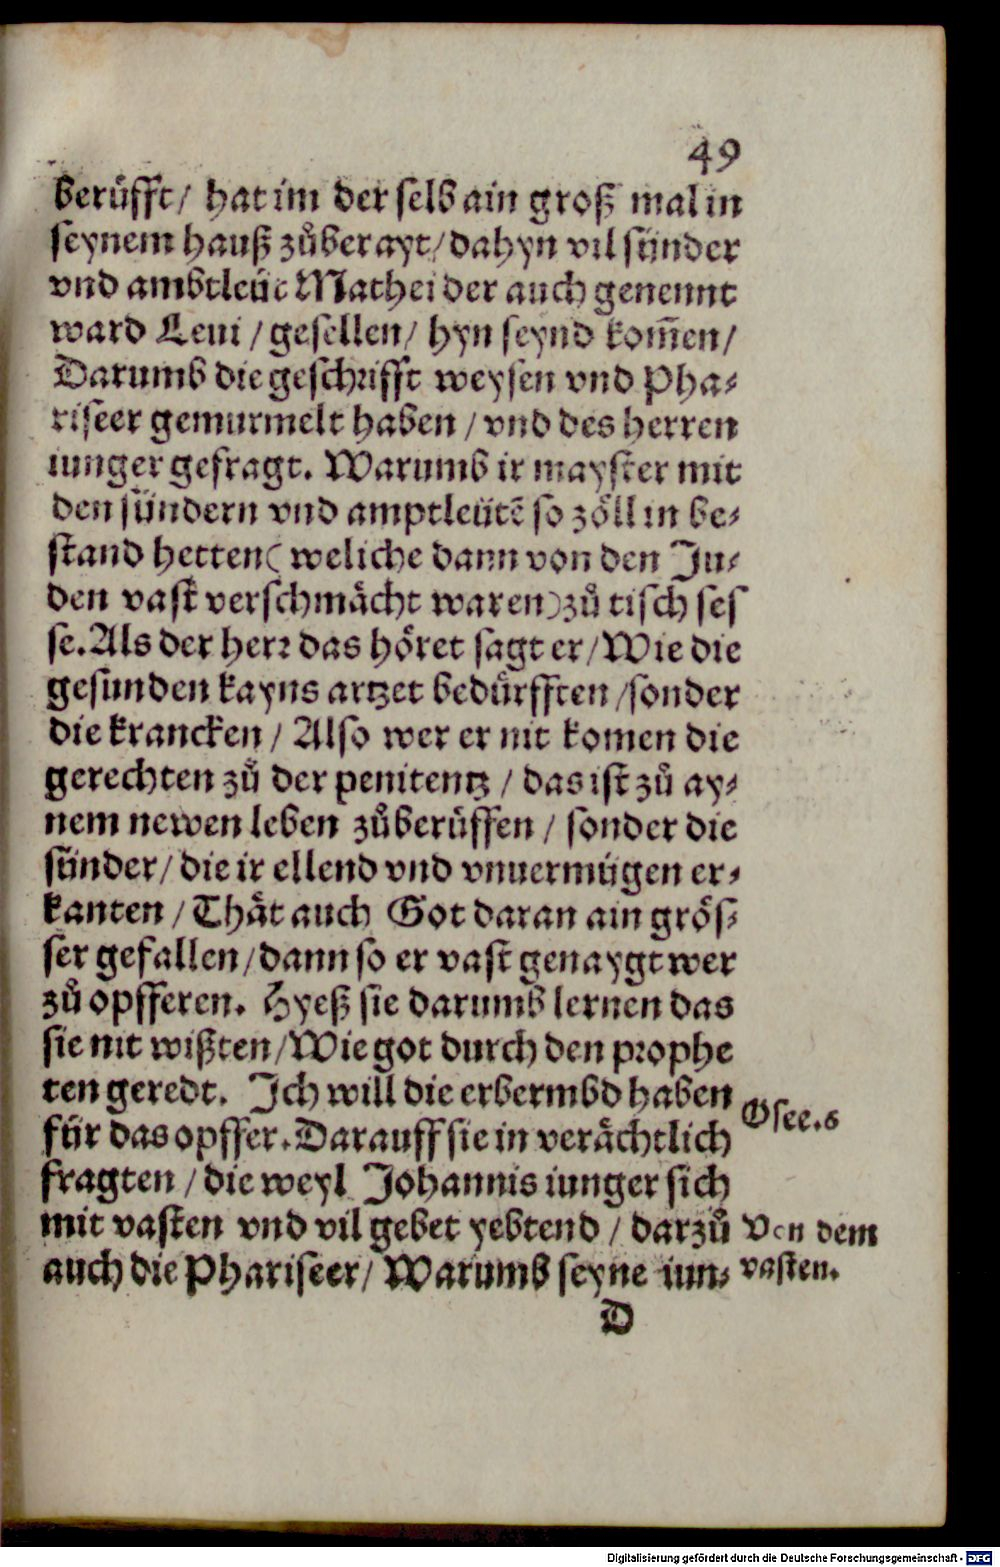 49
berüfft/ hat im der selb ain groß mal in
seynem hauß zůberayt/ dahyn vil sünder
vnd ambtleüt Mathei der auch genennt
ward Leui / gesellen/ hyn seynd kom̃en/
Darumb die geschrifft weysen vnd Pha⸗
riseer gemurmelt haben / vnd des herren
iunger gefragt. Warumb ir mayster mit
den sündern vnd amptleütẽ so zöll in be⸗
stand hetten( weliche dann von den Ju⸗
den vast verschmächt waren)zů tisch ses
se. Als der herr das höret sagt er/ Wie die
gesunden kayns artzet bedürfften /sonder
die krancken / Also wer er nit komen die
gerechten zů der penitentz / das ist zů ay⸗
nem newen leben zůberüffen / sonder die
sünder/ die ir ellend vnd vnuermügen er⸗
kanten / Thät auch Got daran ain grös⸗
ser gefallen/ dann so er vast genaygt wer
zů opfferen. Hyeß sie darumb lernen das
sie nit wißten/ Wie got durch den prophe
ten geredt. Ich will die erbermbd haben
Osee.6
für das opffer. Darauff sie in verächtlich
fragten / die weyl Johannis iunger sich
mit vasten vnd vil gebet yebtend / darzů
Von dem
auch die Phariseer/ Warumb seyne iun⸗
vasten.
D
Digitalisierung gefördert durch die Deutsche Forschungsgemeinschaft - DFG